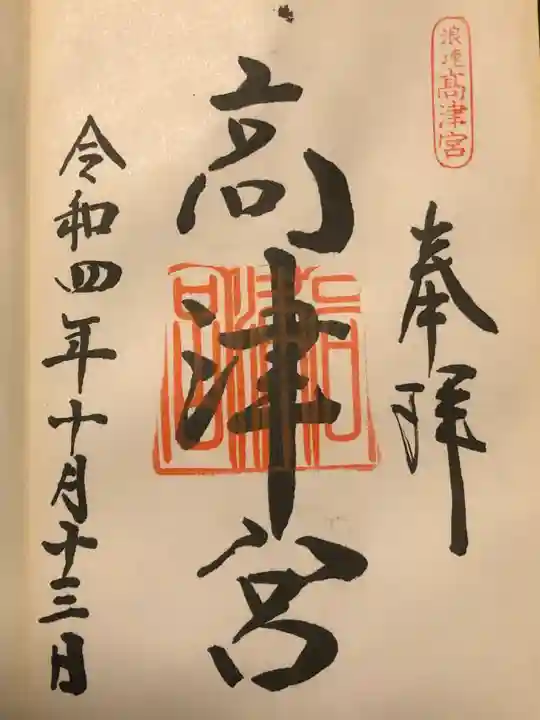 浪速高津宮
奉拝
高津宮
令和四年十月十三日